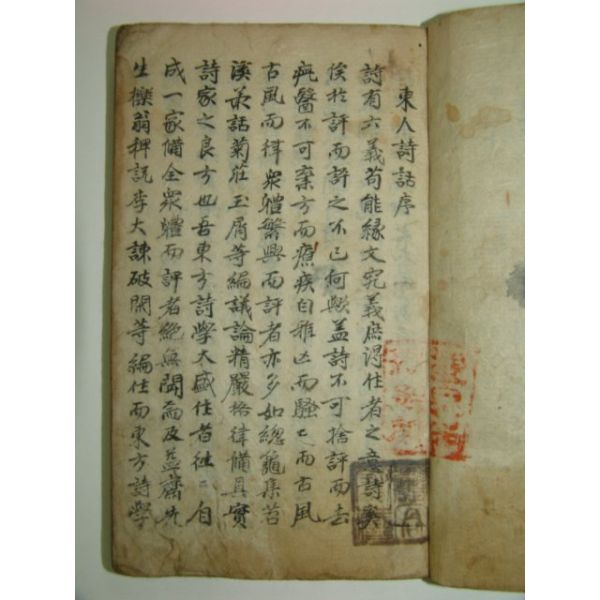 東人詩話序
詩有六義苟能緣文究義庶得作者之意詩奚
俟於評而評之不已何歟盖詩不可捨評而去
疵醫不可棄方而療疾自雅亡而騷〻而古風
古風而律衆體繁興而評者亦多如總龜集苕
溪叢話菊莊玉屑等編議論精嚴格律備具實
詩家之良方也吾東方詩學大盛作者往〻自
成一家備全衆體而評者絶無聞焉及益齋先
生櫟翁稗說李大諫破閑等編作而東方詩學